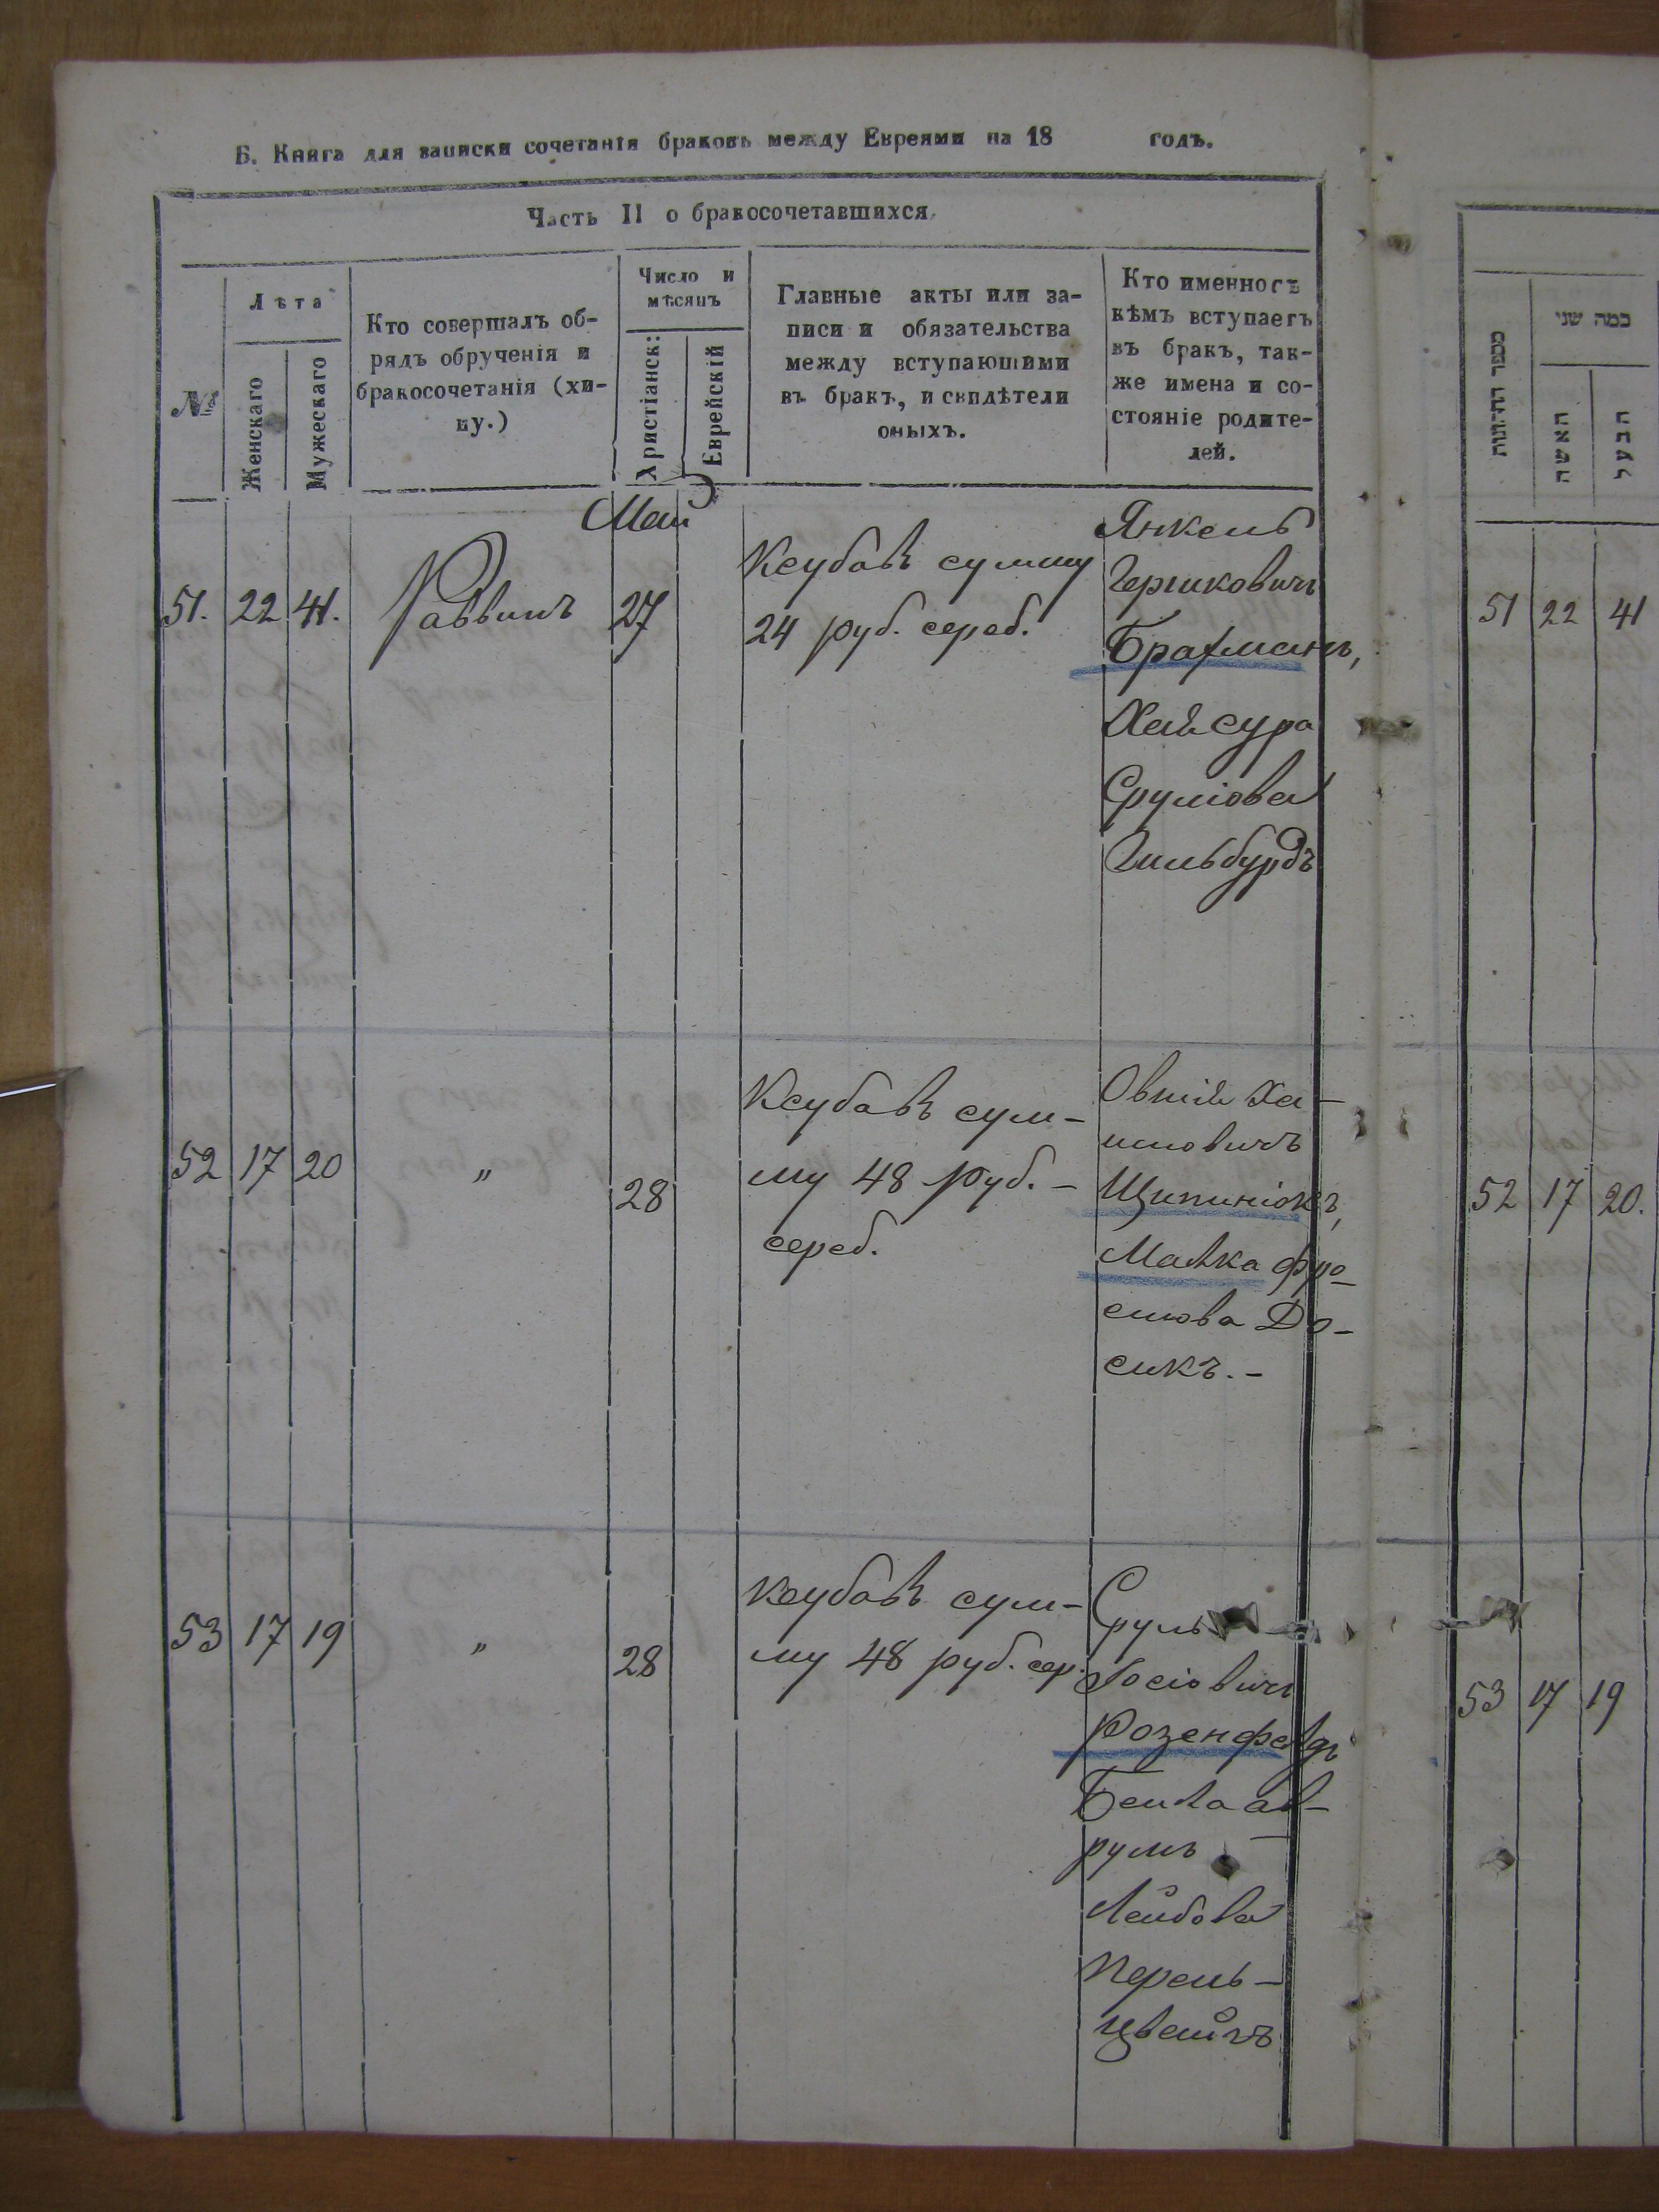 Б. Книга для записки сочетанія браковъ между Евреями на 18 годъ.
Часть II о бракосочетавшихся.
№
Лѣта
Женскаго
Мужескаго
Кто совершалъ об-
рядъ обрученія и
бракосочетанія (хи-
пу.)
Число и
мѣсяцъ
Христіанск:
Еврейскій
Главные акты или за-
писи и обязательства
между вступающими
въ бракъ, и свидѣтели
оныхъ.
Кто именно съ
кѣмъ вступаетъ
въ бракъ, так-
же имена и со-
стояніе родите-
лей.
Май
51. 22 41. Раввинъ 27
Ксубавъ сумму
24 руб. сереб.
Янкель
Гершковичъ
Брахманъ,
Хайсура
Сруліова
Гильбурдъ
52 17 20 „ 28
Ксубавъ сум-
му 48 руб. –
сереб.
Овшій Ха-
имовичъ
Щипиніокъ,
Малка фро-
емова До-
сикъ. –
53 17 19 „ 28
Ксубавъ сум-
му 48 руб. сер.
Сруль
Іосіовичъ
Розенфелдъ
Бейла ав-
румъ –
Лейбова
Перель-
цвейгъ
מספר החתונות
כמה שני
האשה
הבעל
51 22 41
52 17 20.
53 17 19